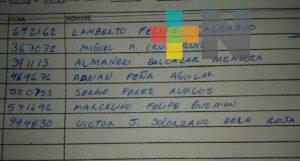 FICHA NOMBRE
642162 LAMBERTO FELIPE
367072 MIGUEL A. CRUZ RUIZ
391113 ALMANERI BALCAZAR MENDOZA
464676 ADRIAN PEÑA AGUILAR
520753 SERGIO PEREZ AVALOS
571692 MARCELINO FELIPE GUZMAN
494830 VICTOR J. SOLORZANO DE LA ROSA